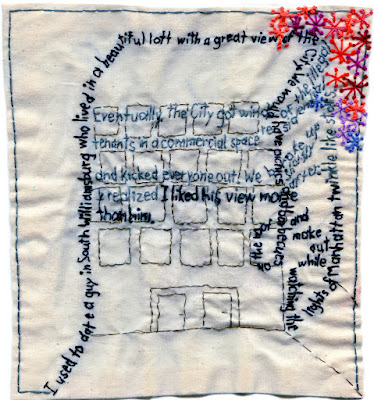 I used to date a guy in South Williamsburg who lived in a beautiful loft with a great view of the
City. We would
have picnics
and barbecues
and
make
out
while
watching the
lights of Manhattan twinkle like stars
Eventually, the City got wind of the illegal
tenants in a commercial space
and kicked everyone out. We
up
after.
I realized I liked his view more
than him.